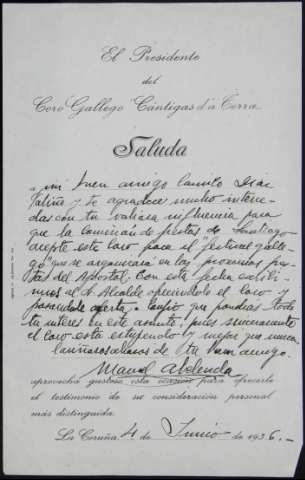 El Presidente
del
Coro Gallego Cántigas d'a Terra
Saluda
a mi buen amigo Camilo Díaz
Baliño y le agradece mucho interce-
das con tu valiosa influencia para
que la Comisión de fiestas de Santiago
acepte este Coro para el "festival galle-
go" que se organizará en las próximas fies-
tas del Apóstol. Con esta fecha escribi-
mos al Sr. Alcalde ofreciéndole el Coro y
pasándole oferta. Confío que pondrás todo
tu interés en este asunto, pues sinceramente
el Coro está estupendo y mejor que nunca
Cariñosos abrazos de tu buen amigo.
Manuel Abelenda
aprovecha gustoso esta ocasión para ofrecerle
el testimonio de su consideración personal
más distinguida.
La Coruña, 4 de Junio de 1936.-